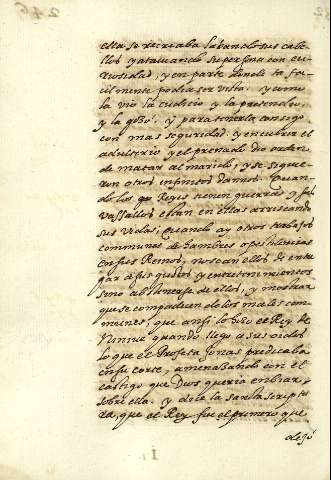 ella se recreaba labando sus cabe-
llos y ataviando su persona con cu-
riosidad, y en parte donde fa-
cilmente podia ser vista. y como
la vio la cudicio y la pretendio,
y la gozo. y para tenerla consigo
con mas seguridad y encubrir el
adulterio y el preñado dio orden
de matar al marido, y se siguie-
ron otros infinitos daños. Quan-
do los Reyes tienen guerras y sus
vasallos estan en ellas arriscando
sus vidas, quando ay otros trabajos
communes de hambres o pestilencias
en sus Reinos, no se an ellos de entre
gar a sus gustos y entretenimientos
sino abstenerse de ellos, y mostrar
que se compadecen de los males com-
munes, que ansi lo hizo el Rey de
Ninive quando llego a sus oidos
lo que el Profeta Jonas predicaba
en su corte, amenazando con el
castigo que Dios queria enbiar
sobre ella. y dice la santa scriptu-
ra, que el Rey fue el primero que
dejó